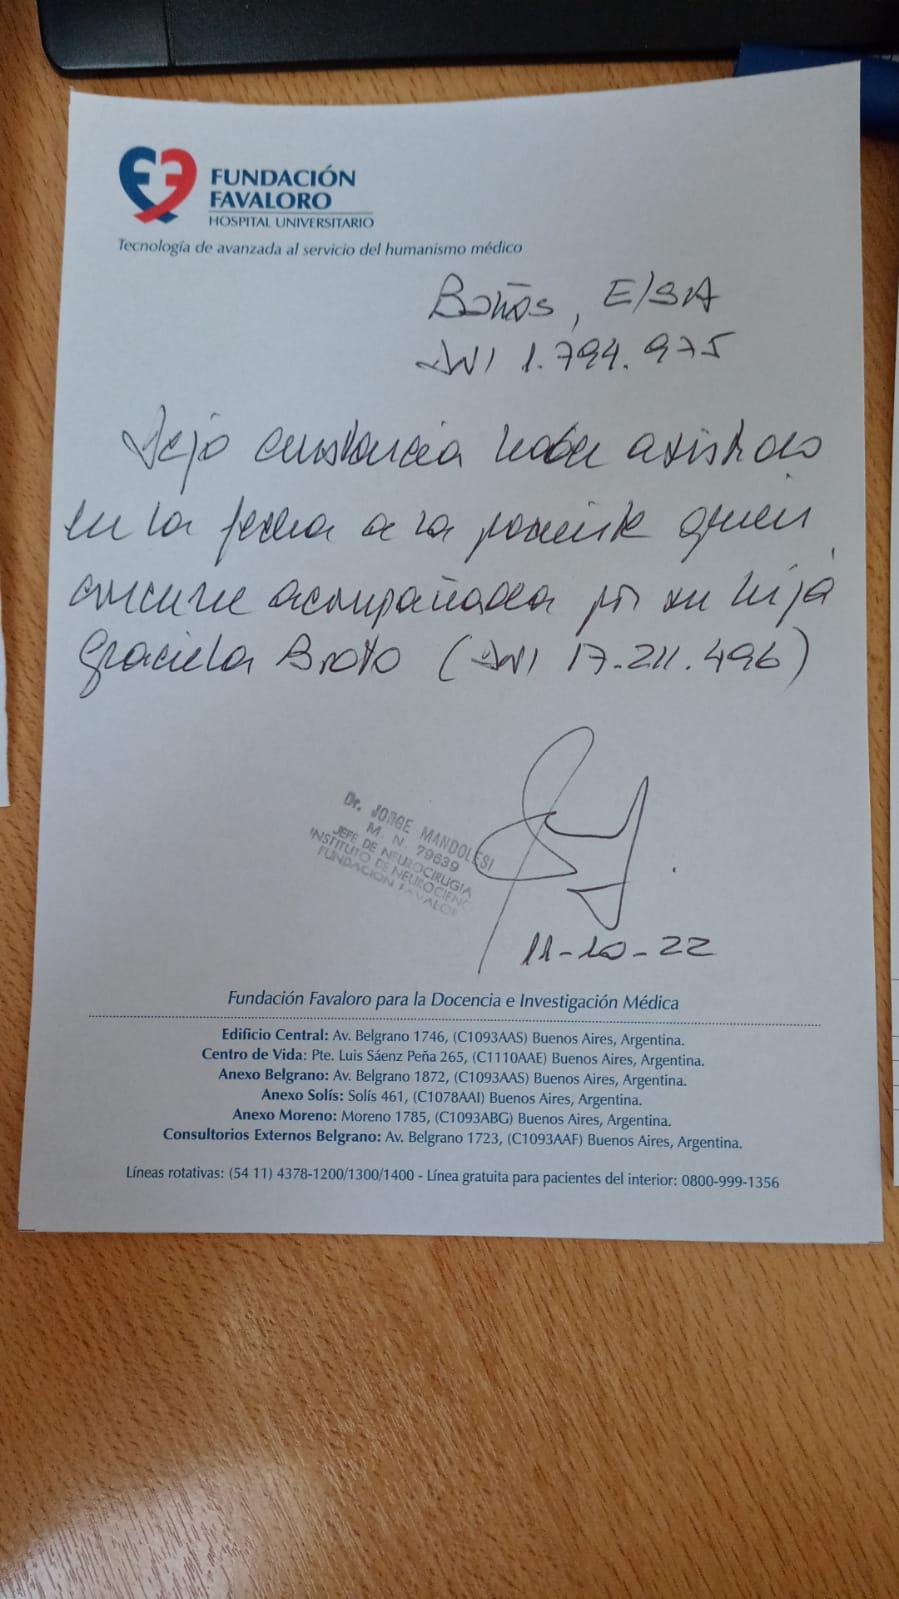 FUNDACIÓN
FAVALORO
HOSPITAL UNIVERSITARIO
Tecnología de avanzada al servicio del humanismo médico
, ElSA
DNI 1.794.975
Dejo constancia haber asistido
en la fecha a la paciente quien
concurre acompañada por su hija
Graciela (DNI 17.211.496)
Dr. JORGE MANDOLESI
M. N. 79639
JEFE DE NEUROCIRUGIA
INSTITUTO DE NEUROCIENC
FUNDACION FAVALO
11-10-22
Fundación Favaloro para la Docencia e Investigación Médica
Edificio Central: Av. Belgrano 1746, (C1093AAS) Buenos Aires, Argentina.
Centro de Vida: Pte. Luis Sáenz Peña 265, (C1110AAE) Buenos Aires, Argentina.
Anexo Belgrano: Av. Belgrano 1872, (C1093AAS) Buenos Aires, Argentina.
Anexo Solís: Solís 461, (C1078AAI) Buenos Aires, Argentina.
Anexo Moreno: Moreno 1785, (C1093ABG) Buenos Aires, Argentina.
Consultorios Externos Belgrano: Av. Belgrano 1723, (C1093AAF) Buenos Aires, Argentina.
Líneas rotativas: (54 11) 4378-1200/1300/1400 - Línea gratuita para pacientes del interior: 0800-999-1356